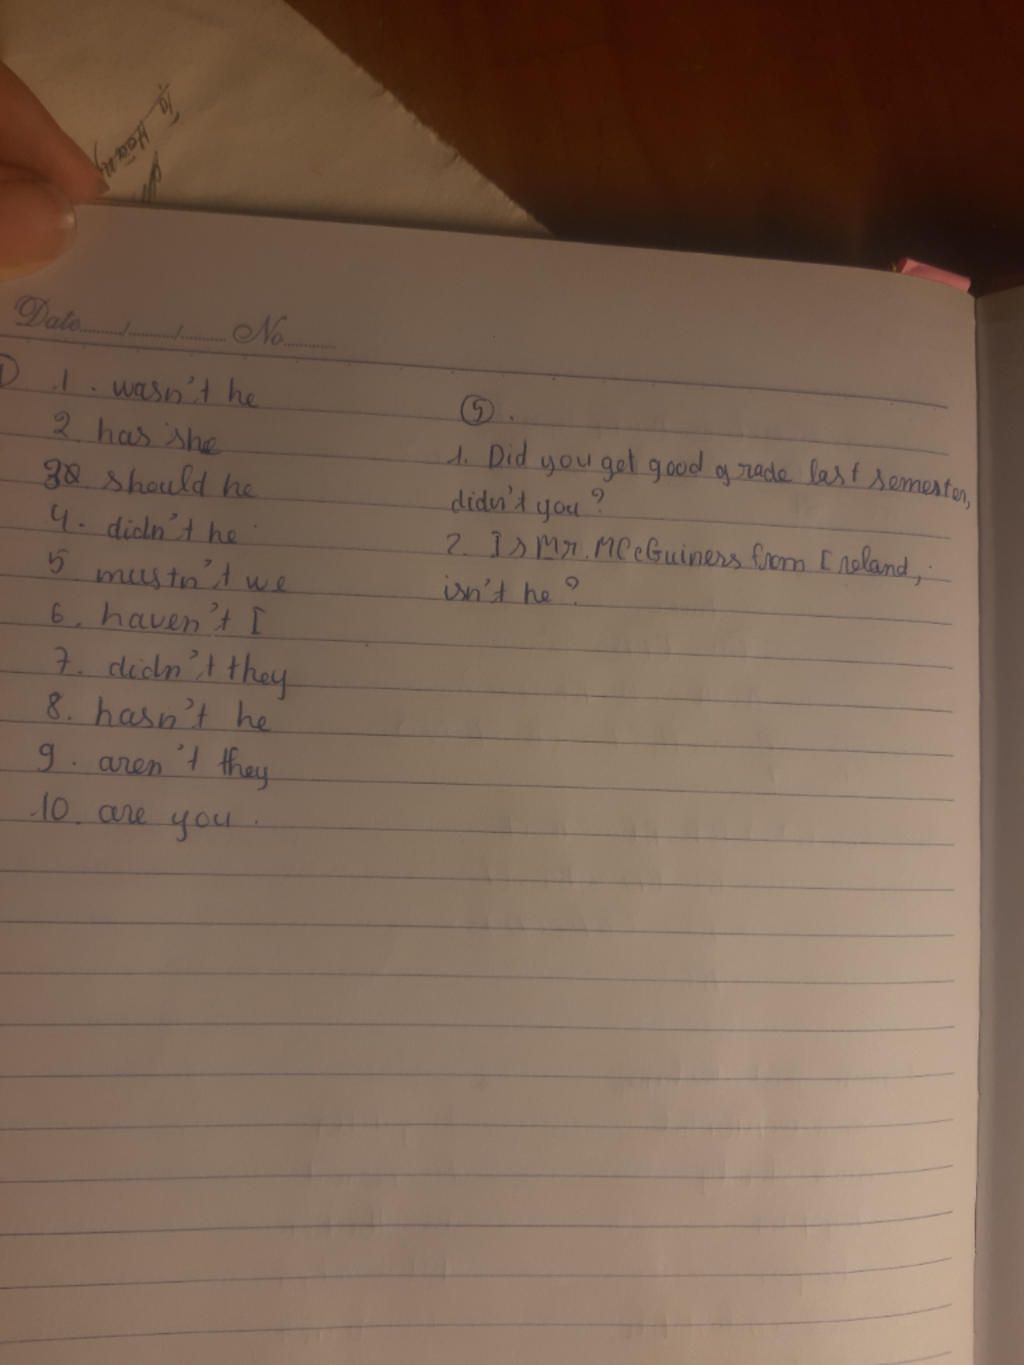 Date......./......./....... No.......
1. wasn't he
2. has she
3. should he
4. didn't he
5 mustn't we
6. haven't I
7. didn't they
8. hasn't he
9. aren't they
10. are you.
5.
1. Did you get good grade last semester,
didn't you?
2. Is Mr. McGuiners from Ireland,
isn't he?